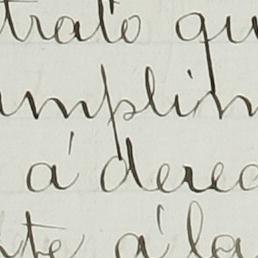 trato qu
umplim
á derec
nte á la